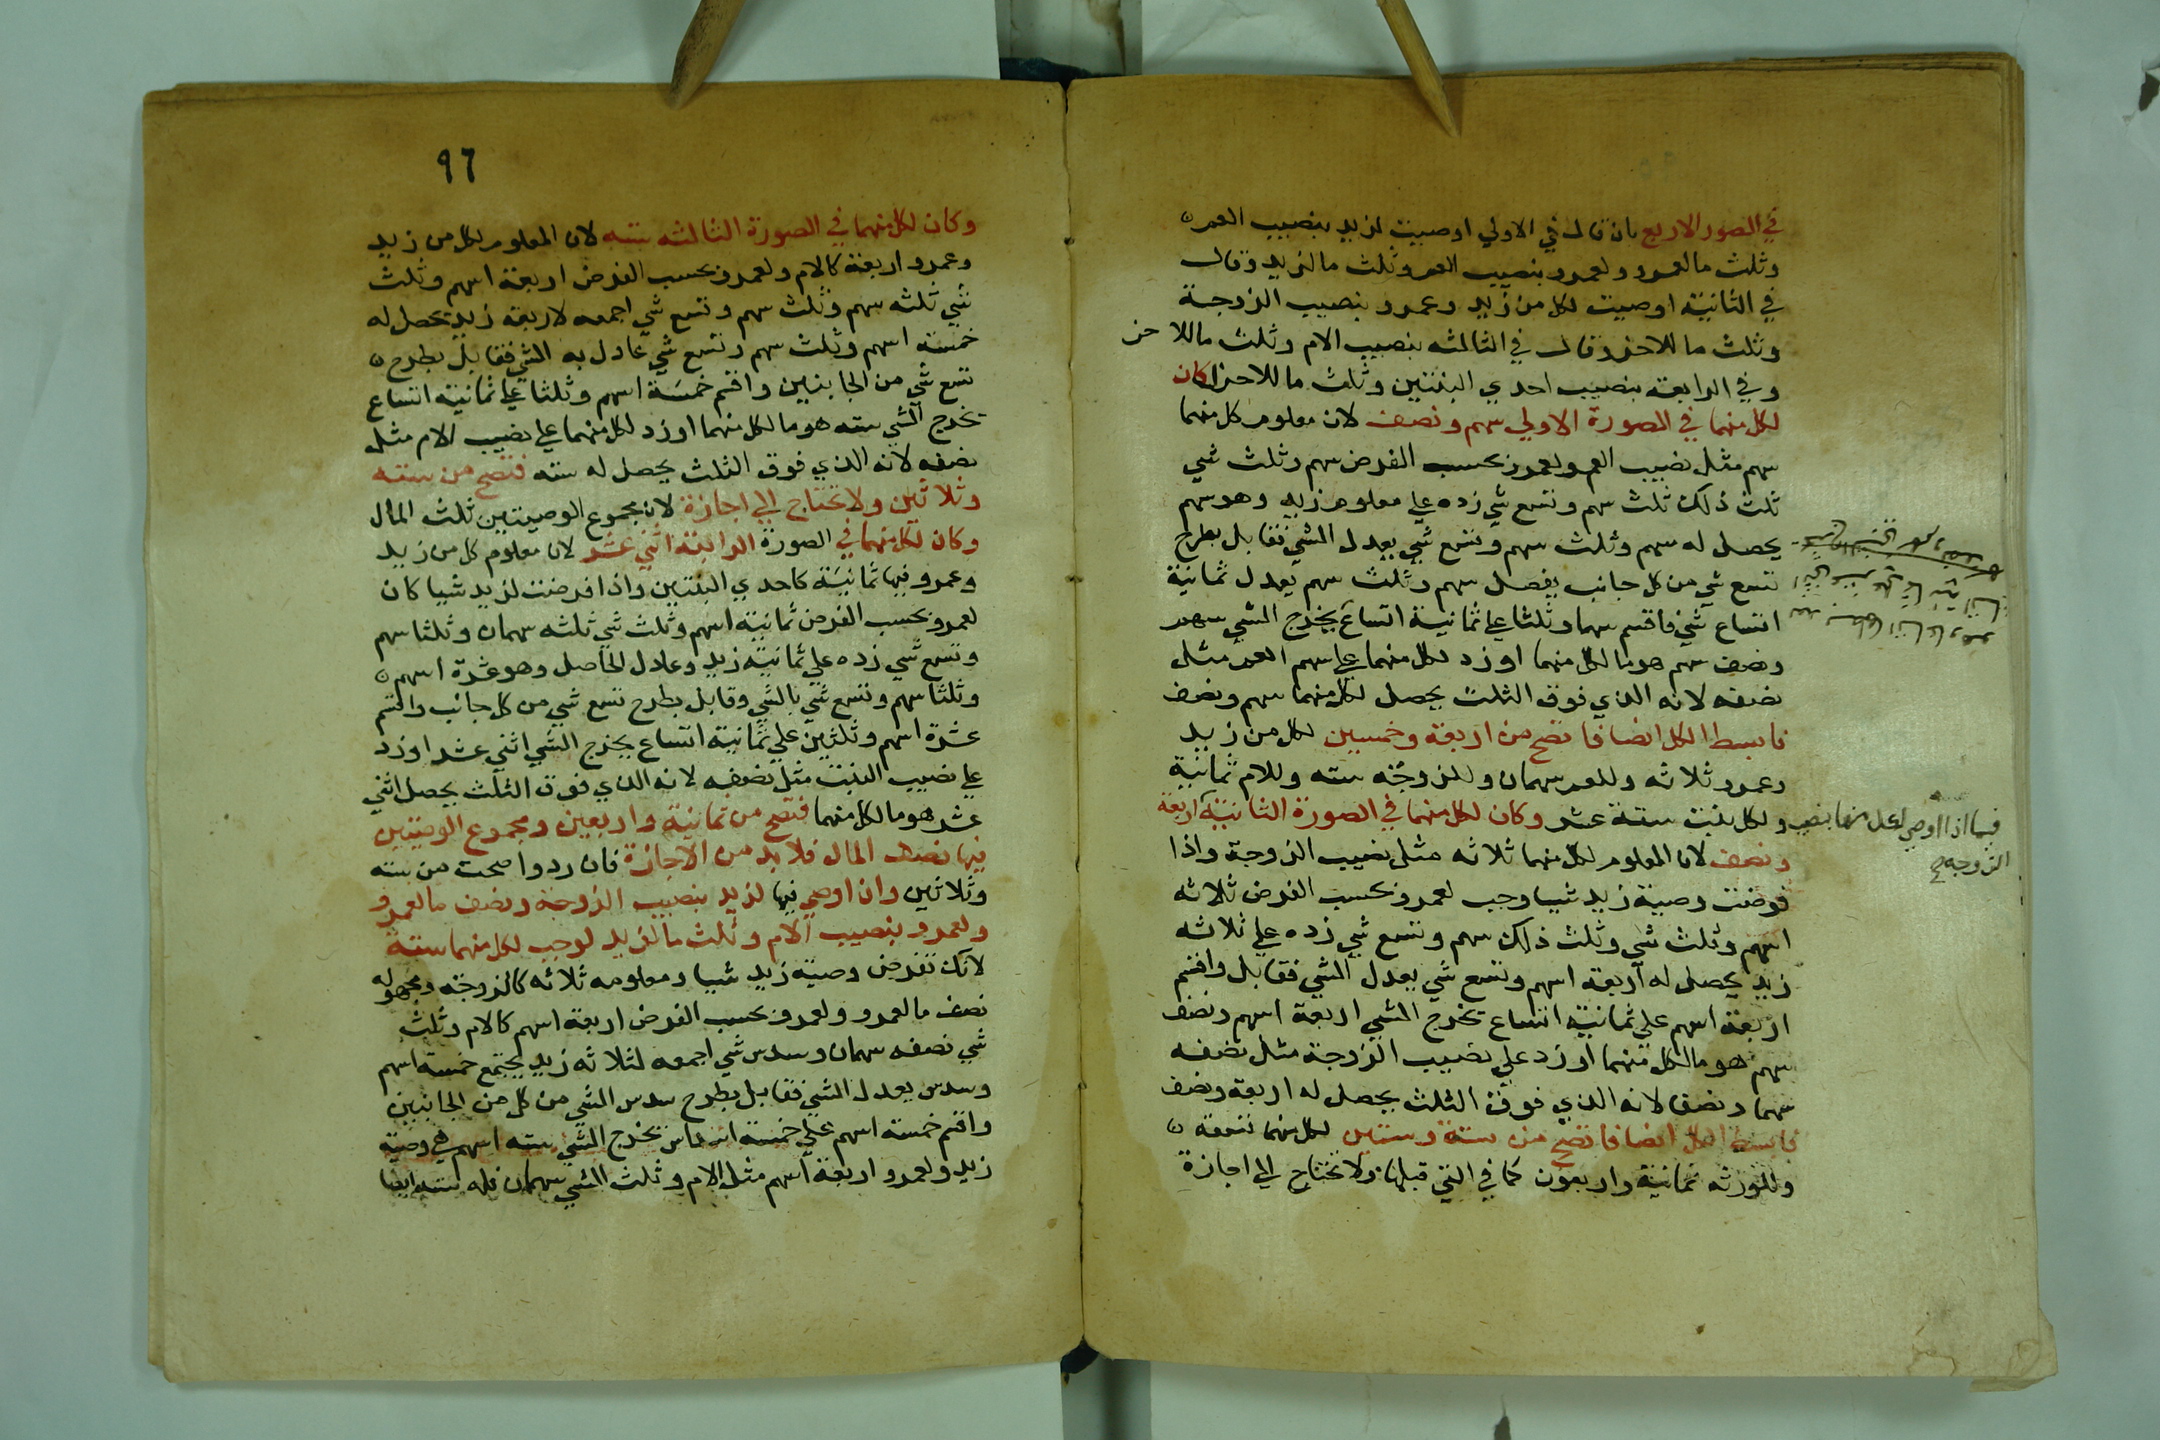 في الصور الاربع بان قال في الاولي اوصيت لزيد بنصيب العم
وثلث ما لعمرو ولعمرو بنصيب العم وثلث ما لزيد وقال
في الثانية اوصيت لكل من زيد وعمرو بنصيب الزوجة
وثلث ما للاخر وقال في الثالثه بنصيب الام وثلث ماللا خر
وفي الرابعه بنصيب احدي البنتين وثلث ما للاخر كان
لكل منهما في الصورة الاولي سهم ونصف لان معلوم كل منهما
سهم مثل نصيب العم ولعمرو بحسب الفرض سهم وثلث شي
ثلث ذلك ثلث سهم وتسع شي زده علي معلوم زيد وهو سهم
يحصل له سهم وثلث سهم وتسع شي يعدل الشي فقابل بطرح
تسع شي من كل جانب يفضل سهم وثلث سهم يعدل ثمانية
اتساع شي فاقسم سهما وثلثا علي ثمانية اتساع يخرج الشي سهم
ونصف سهم هو ما لكل منهما او زد لكل منهما علي سهم العم مثل
نصفه لانه الذي فوق الثلث يحصل لكل منهما سهم ونصف
فابسط الكل انصافا تصح من اربعة وخمسين لكل من زيد
وعمرو ثلاثه وللعم سهمان وللزوجة سته وللام ثمانية
ولكل بنت ستة عشر وكان لكل منهما في الصورة الثانية اربعة
ونصف لان المعلوم لكل منهما ثلاثه مثل نصيب الزوجة واذا
فرضت وصية زيد شيا وجب لعمرو بحسب الفرض ثلاثه
اسهم وثلث شي وثلث ذلك سهم وتسع شي زده علي ثلاثه
زيد يحصل له اربعة اسهم وتسع شي يعدل الشي فقابل واقسم
اربعة اسهم علي ثمانية اتساع تخرج الشي اربعة اسهم ونصف
سهم هو ما لكل منهما او زد علي نصيب الزوجة مثل نصفه
سهما ونصفا لانه الذي فوق الثلث يحصل له اربعة ونصف
فابسط الكل انصافا تصح من ستة وستين لكل منهما تسعة
وللورثه ثمانية واربعون كما في التي قبلها ولا تحتاج الي اجازة
فيما اذا اوصي لكل منهما بنصيب
الزوجه صح
٩٦
وكان لكل منهما في الصورة الثالثه سته لان المعلوم لكل من زيد
وعمرو اربعة كالام ولعمرو بحسب الفرض اربعة اسهم وثلث
شي ثلثه سهم وثلث سهم وتسع شي اجمعه لاربعة زيد يحصل له
خمسة اسهم وثلث سهم وتسع شي عادل به الشي فقابل بطرح
تسع شي من الجانبين واقسم خمسة اسهم وثلثا علي ثمانية اتساع
تخرج الشي سته هو ما لكل منهما او زد لكل منهما علي نصيب الام مثل
نصفه لانه الذي فوق الثلث يحصل له سته فتصح من ستة
وثلاثين ولا تحتاج الي اجازة لان مجموع الوصيتين ثلث المال
وكان لكل منهما في الصورة الرابعة اثني عشر لان معلوم كل من زيد
وعمرو فيها ثمانية كاحدي البنتين واذا فرضت لزيد شيا كان
لعمرو بحسب الفرض ثمانية اسهم وثلث شي ثلثه سهمان وثلثا سهم
وتسع شي زده علي ثمانية زيد وعادل الحاصل وهو عشرة اسهم
وثلثا سهم وتسع شي بالشي وقابل بطرح تسع شي من كل جانب واقسم
عشرة اسهم وثلثين علي ثمانية اتساع يخرج الشي اثني عشر او زد
علي نصيب البنت مثل نصفه لانه الذي فوق الثلث يحصل اثني
عشر هو ما لكل منهما فتصح من ثمانية واربعين ومجموع الوصيتين
فيها نصف المال فلا بد من الاجازة فان ردوا صحت من سته
وثلاثين وان اوصي فيها لزيد بنصيب الزوجة ونصف ما لعمرو
ولعمرو بنصيب الام وثلث ما لزيد لوجب لكل منهما ستة
لانك تفرض وصية زيد شيا ومعلومه ثلاثه كالزوجة ومجهوله
نصف ما لعمرو ولعمرو بحسب الفرض اربعة اسهم كالام وثلث
شي نصفه سهمان وسدس شي اجمعه لثلاثه زيد يجتمع خمسة اسهم
وسدس يعدل الشي فقابل بطرح سدس الشي من كل من الجانبين
واقسم خمسة اسهم علي خمسة اسداس يخرج الشي سته اسهم هي وصية
زيد ولعمرو اربعة اسهم مثل الام وثلث الشي سهمان فله سته ايضا